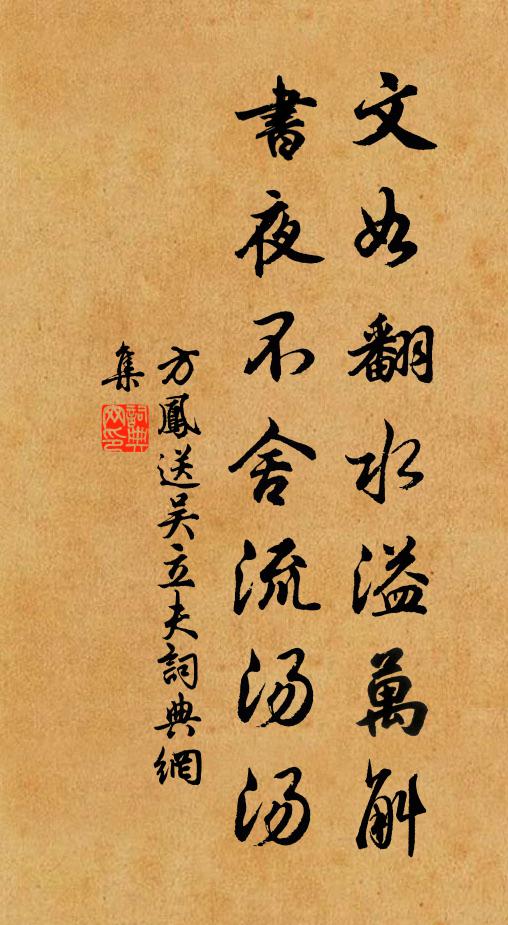 文如翻水溢萬斛
書夜不舍流汤汤
方鳳送吴立夫詞典網
集
詞典
网印